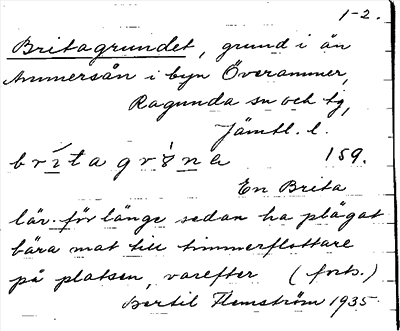 1-2.
Britagrundet, grund i ån
Ammersån i byn Överammer,
Ragunda sn och tg,
Jämtl. l.
159.
En Brita
lär för länge sedan ha plägat
bära mat till timmerflottare
på platsen, varefter (forts.)
Bertil Flemström 1935.